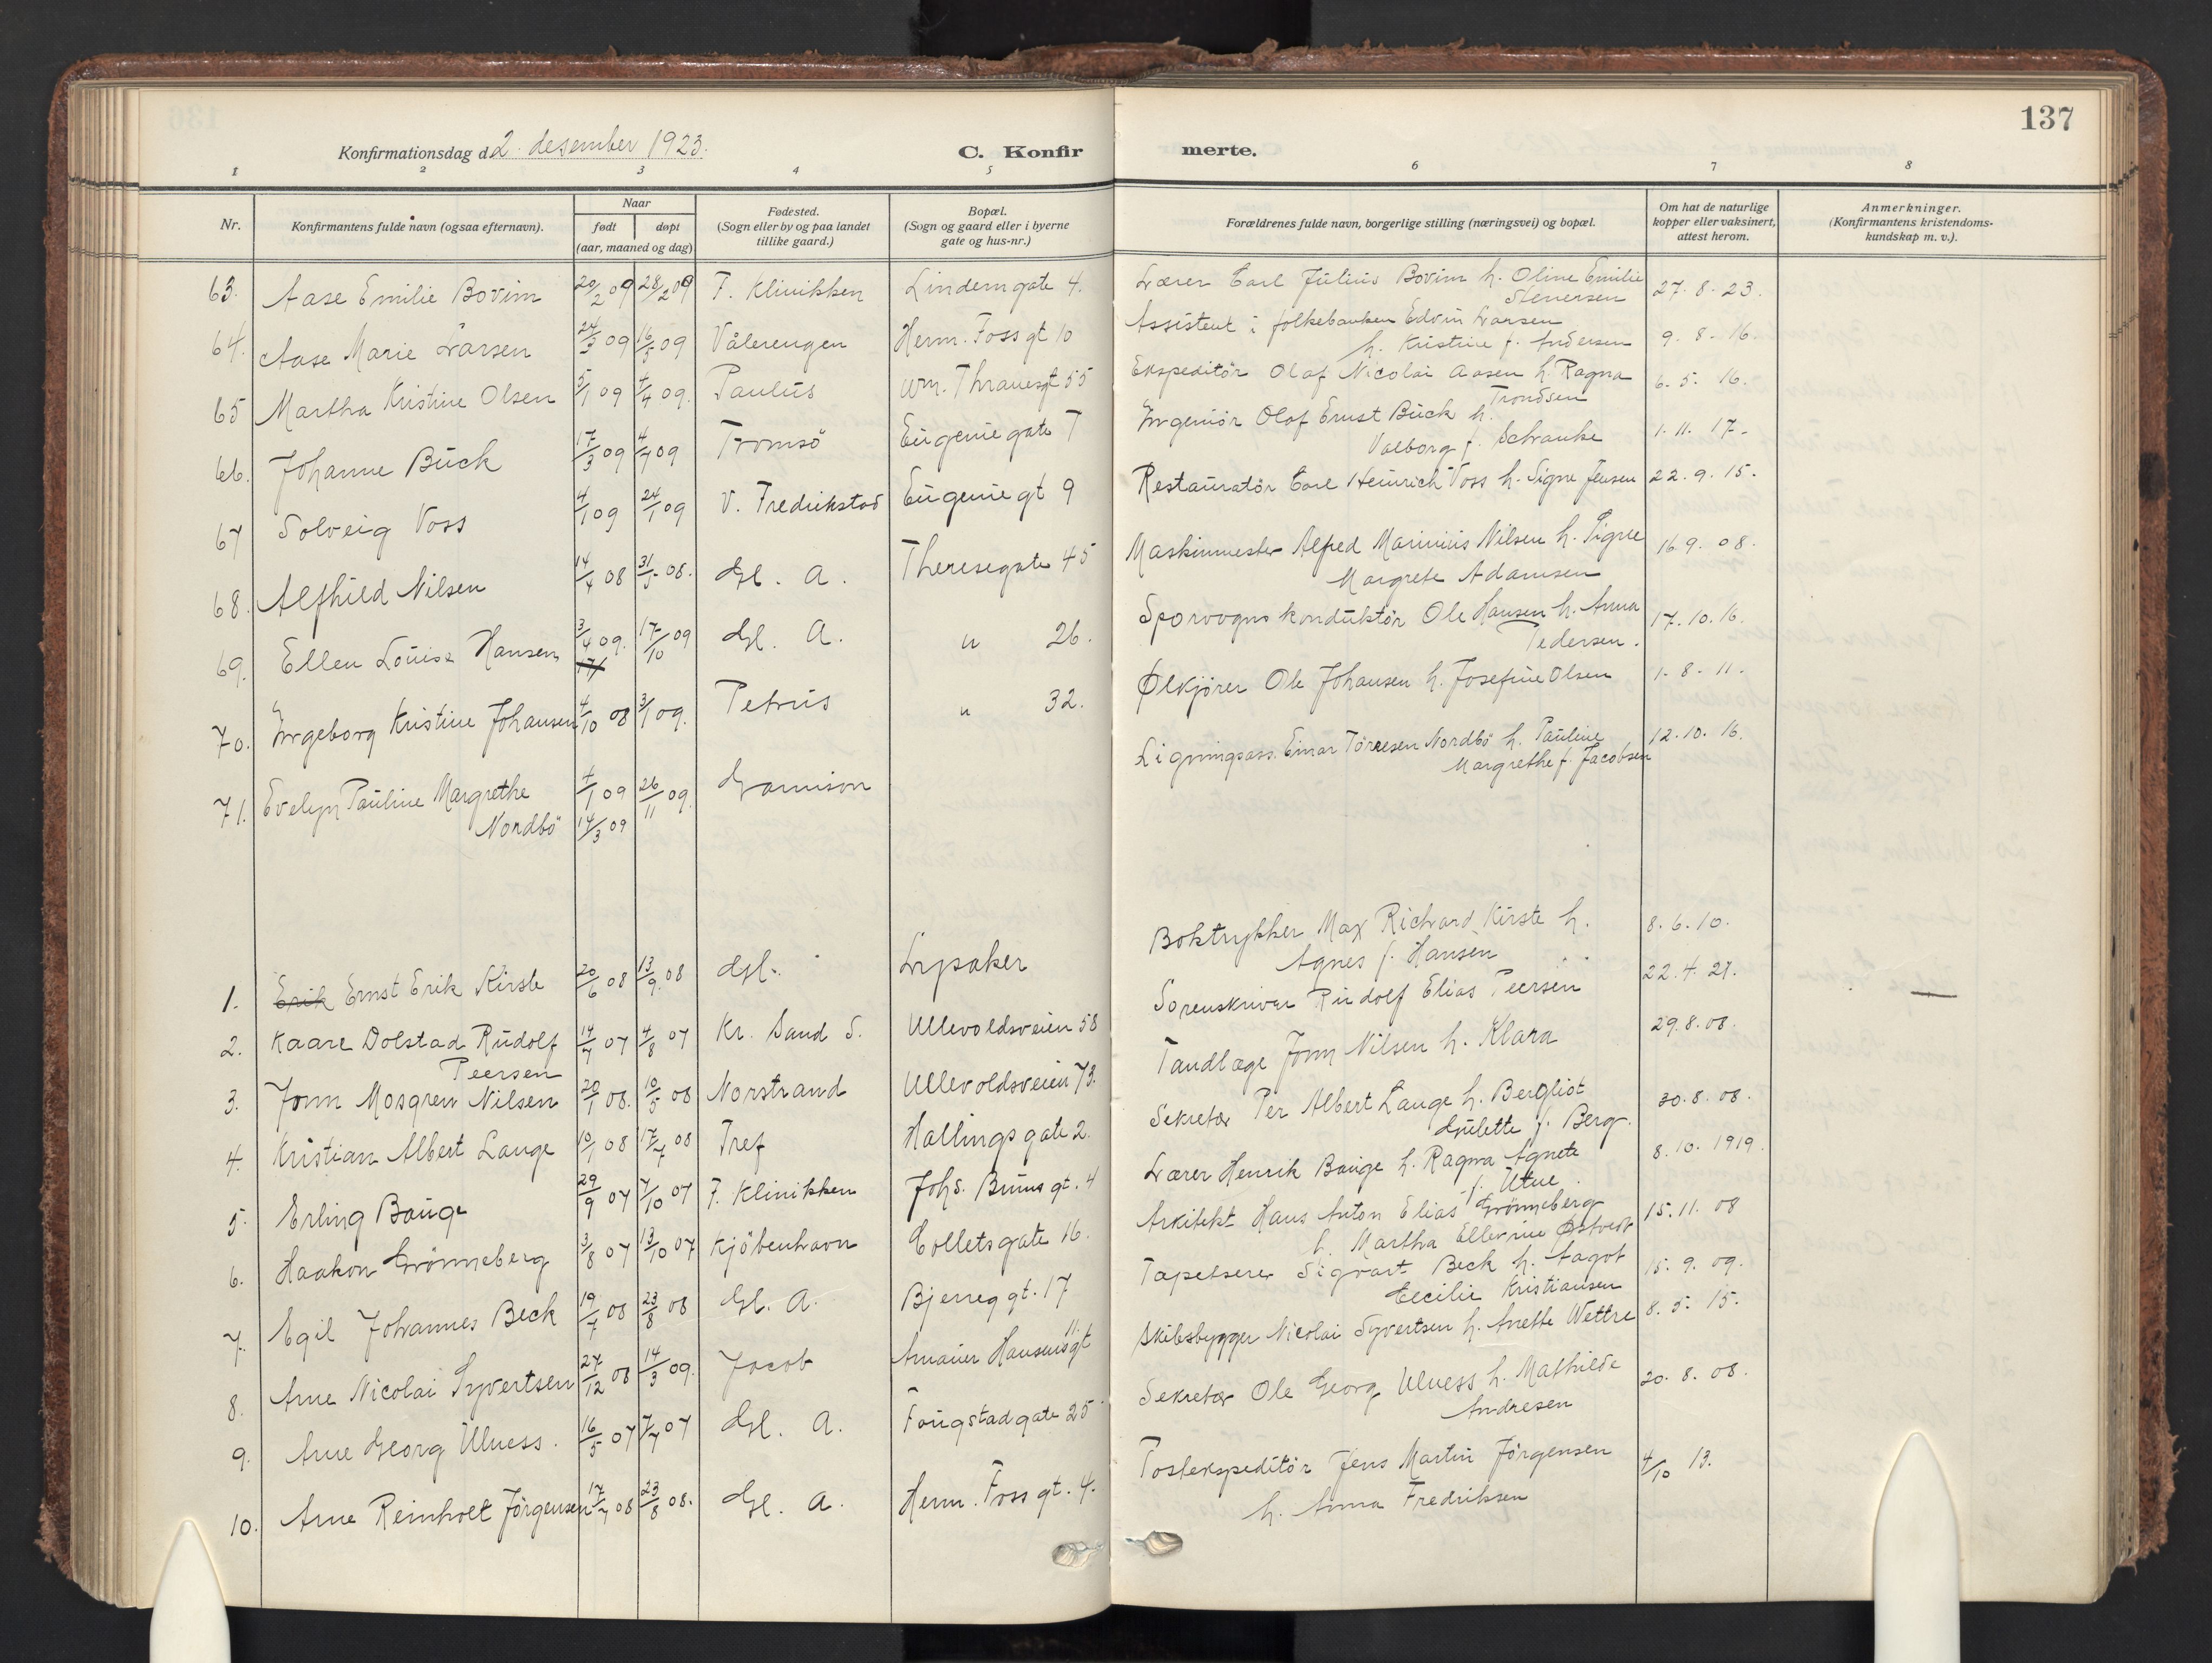 137
Konfirmationsdag d. 2. desember 1923.
C. Konfirmerte.
1 2 3 4 5 6 7 8
Nr.
Konfirmantens fulde navn (ogsaa efternavn).
Naar
født døpt
(aar, maaned og dag)
Fødested.
(Sogn eller by og paa landet
tillike gaard.)
Bopæl.
(Sogn og gaard eller i byerne
gate og hus-nr.)
Forældrenes fulde navn, borgerlige stilling (næringsvei) og bopæl.
Om hat de naturlige
kopper eller vaksinert,
attest herom.
Anmerkninger.
(Konfirmantens kristendoms-
kundskap m. v.).
63. Aase Emilie Bovim 20/2 09 28/2 09 F. Klinikken Linderngate 4. Lærer Carl Julius Bovim h. Oline Emilie 27. 8. 23.
Stenersen
64. Aase Marie Larsen 24/3 09 16/5 09 Vålerengen Herm. Foss gt 10 Assistent i folkebanken Edvin Larsen
h. Kristine f. Andersen 9. 8. 16.
65 Martha Kristine Olsen 5/1 09 4/4 09. Paulus Wm. Thranesgt 55 Ekspeditör Olaf Nicolai Aasen h. Ragna 6. 5. 16.
Trondsen
66. Johanne Buck 17/3 09 4/7 09 Tromsö Eugenie gate 7 Ingeniör Olaf Ernst Buck h.
Valborg f. Schranke 1. 11. 17.
67 Solveig Voss 4/1 09 24/1 09 V. Fredrikstad Eugenie gt 9 Restauratör Carl Heinrich Voss h. Signe Jensen 22. 9. 15.
68. Alfhild Nilsen 14/4 08 31/5 08. Gl. A. Theresegate 45 Maskinmester Alfred Marinius Nilsen h. Signe 16. 9. 08.
Margrete Adamsen
69. Ellen Louise Hansen 3/4 09. 17/10 09 Gl. A. " 26. Sporvognskonduktör Ole Hansen h. Anna 17. 10. 16.
Pedersen.
70. Ingeborg Kristine Johansen 4/10 08 3/1 09. Petrus " 32. Ølkjører Ole Johansen h. Josefine Olsen 1. 8. 11.
71. Evelyn Pauline Margrethe 4/1 09 26/11 09. Garnison Ligningsass. Einar Töresen Nordbö h. Pauline 12. 10. 16.
Nordbö 14/3 09 Margrethe f. Jacobsen
1. Erik Ernst Erik Kirste 20/6 08 13/9 08 Gl. Lysaker Boktrykker Max Richard Kirste h. 8. 6. 10.
Agnes f. Hansen
2. Kaare Dolstad Rudolf 14/7 07 4/8 07 Kr. Sand S. Ullevoldsveien 58 Sorenskriver Rudolf Elias Peersen 22. 4. 21.
Peersen
3. Jonn Mosgren Nilsen 20/1 08. 10/5 08 Norstrand Ullevoldsveien 73. Tandlæge Jonn Nilsen h. Klara 29. 8. 08.
4. Kristian Albert Lange 10/1 08 17/7 08 Tref Hallings gate 2. Sekretær Per Albert Lange h. Bergliot 30. 8. 08.
Gulette f. Berg.
5. Erling Bauge 29/9 07 7/10 07 F. Klinikken Johs. Bruns gt. 4 Lærer Henrik Bauge h. Ragna Agnete 8. 10. 1919.
f. Utne
6. Haakon Grönneberg 3/8 07 13/10 07 Kjöbenhavn Collets gate 16. Arkitekt Hans Anton Elias Grönneberg 15. 11. 08
h. Martha Ellevine Østvedt
7. Egil Johannes Beck 19/7 08 23/8 08 Gl. A. Bjerreg gt. 17 Tapetserer Sigvart Beck h. Aagot 15. 9. 09.
Cecilie Kristiansen
8. Arne Nicolai Syvertsen 27/12 08 14/3 09. Jacob Amaier Hansensgt 11. Skibsbygger Nicolai Syvertsen h. Anette Wettre 8. 5. 15.
9. Arne Georg Ulness. 16/5 07 7/7 07 Gl. A. Fougstadgate 25 Sekretær Ole Georg Ulness h. Mathilde 20. 8. 08.
Andresen
10. Arne Reinholt Jörgensen 17/7 08 23/8 08. Gl. A. Herm. Foss gt. 4. Postekspeditör Jens Martin Jörgensen 4/10 13.
h. Anna Fredriksen